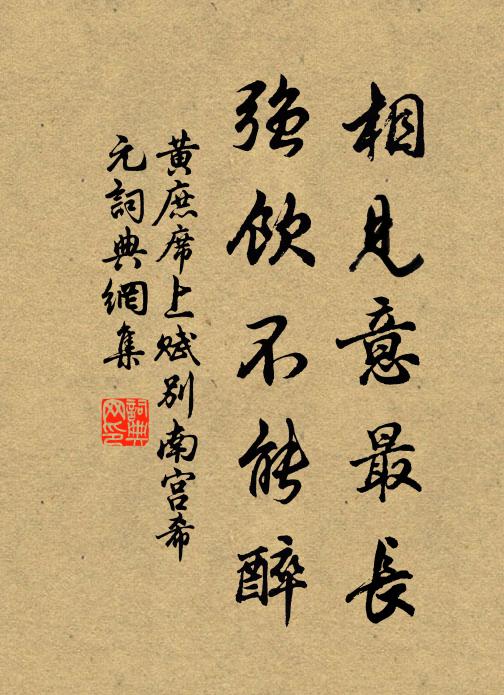 相見意最長
強飲不能醉
黃庶席上賦別南宮希
元詞典網集
詞典網印